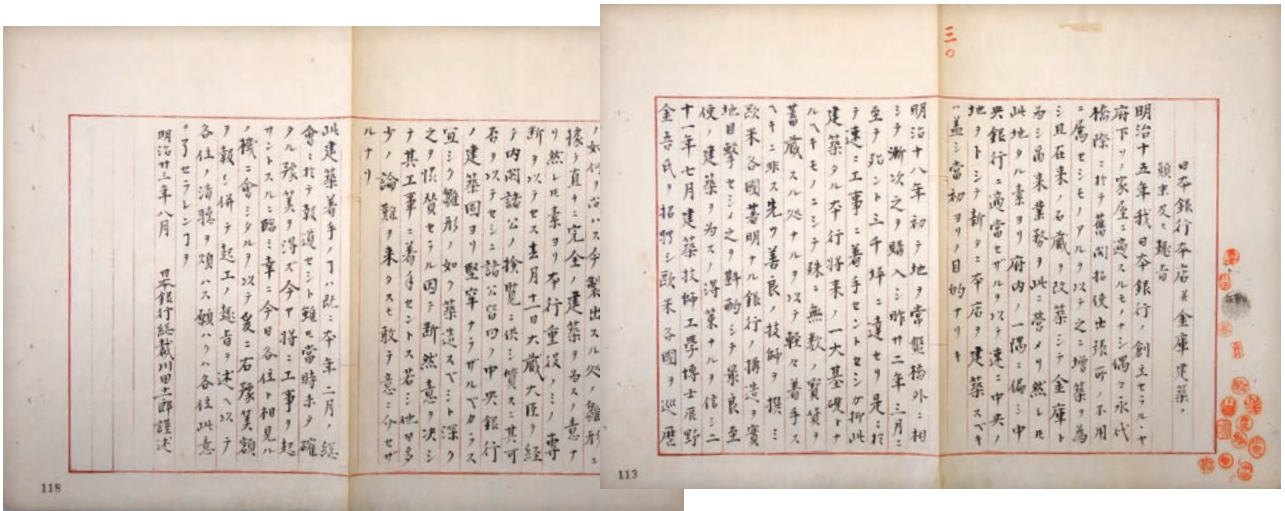 三〇
日本銀行本店並金庫建築ノ
顛末及ヒ趣旨
明治十五年我日本銀行ノ創立セラルヽヤ
府下ノ家屋ニ適スルモノナシ偶々永代
橋際ニ於テ舊開拓使出張所ノ不用
ニ属セシモノアルヲ以テ之ニ増築ヲ為
シ且在来ノ石蔵ヲ改築シテ金庫ト
為シ爾来業務ヲ此ニ營メリ然レ𪜈
此地タル素ヨリ府内ノ一隅ニ偏シ中
央銀行ニ適當セザルヲ以テ速ニ中央ノ
地ヲトシテ新タニ本店ヲ建築スベキ
ハ蓋シ當初ヨリノ目的ナリキ
明治十八年初テ地ヲ常盤橋外ニ相
シテ漸次之ヲ購入シ昨廿二年三月ニ
至テ殆ント三千坪ニ達セリ是ニ於
テ速ニ工事ニ着手セントセシガ抑此
建築タル本行将来ノ一大基礎トナ
ルヘキモノニシテ殊ニ無数ノ寳貨ヲ
蓄蔵スル処ナルヲ以テ軽々着手ス
ヘキニ非ス先ツ善良ノ技師ヲ撰ミ
欧米各國著明ナル銀行ノ構造ヲ實
地目撃セシメ之ヲ斟酌シテ最良至
便ノ建築ヲ為スノ得策ナルヲ信シ二
十一年七月建築技師工學博士辰野
金吾氏ヲ招聘シ欧米各國ヲ巡歴
113
ノ如何ノ
據リ真チニ完全ノ建築ヲ為スノ意ナ
リ然レ𪜈素ヨリ本行重役ノミノ専
断ヲ以テセス去月十一日大蔵大臣ヲ経
テ内閣諸公ノ検覧ニ供シ實スニ其可
否ヲ以テセシニ諸公皆曰ク中央銀行
ノ建築固ヨリ堅牢ナラザルベカラス
宜シク雛形ノ如ク築造スベシト深ク
之ヲ賛セラル因テ断然意ヲ決シ
テ其工事ニ着手セントス若シ他日多
少ノ論難ヲ来タスモ敢テ意ニ介セザ
ルナリ
此建築着手ノヿハ既ニ本年二月ノ総
會ニ於テ報道セシト雖𪜈當時未タ確
タル豫筭ヲ得ズ今ヤ将ニ工事ヲ起
サントスルニ臨ミ幸ニ今日各位ト相見ル
ノ機ニ會シタルヲ以テ爰ニ右豫筭額
ヲ報シ併テ起工ノ趣旨ヲ述ヘ以テ
各位ノ清聴ヲ煩ハス願ハクハ各位此意
ヲ了セラレンヿヲ
明治廿三年八月 日本銀行総裁川田小一郎謹述
118